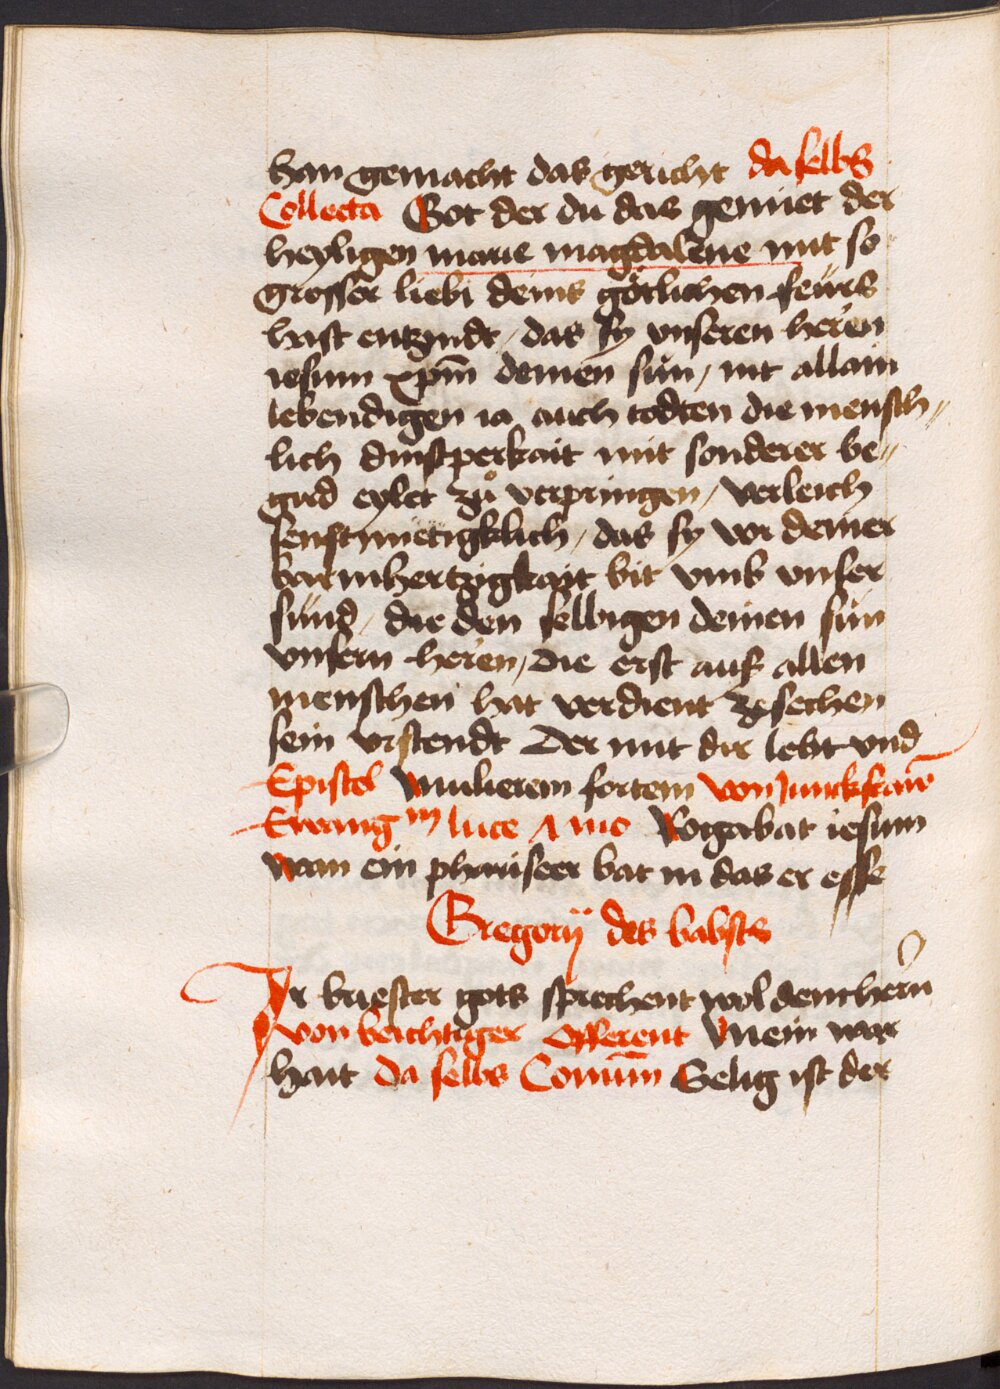 han gemacht das gericht da selbs
Collecta Got der du das gemiet der
heyligen marie magdalene mit so
grosser liebi deins götlichen feürs
hast entzindt / das sy vnseren heren
iesum xp̄m deinen sün / nit allain
lebendigen ia auch todten die mensch //
lich dinstperkait mit sonderer be //
gird eylet zů verpringen / verleich
senftmietigklich / das sy vor deiner
barmhertzigkait bit vmb vnser
sünd / die den selbigen deinen sün
vnsern heren / die erst auß allen
menschen hat verdient zesechen
sein vrstendt Der mit dir lebt vnd
Epistel Mulierem fortem von Junckfraw̄
Ewang in luce Rogabat iesum
wan ein phariseer bat in das er esse
Gregorij des babsts
Ir briester gots sprechent wol dem hern
von beichtiger Offerent Mein war
hait da selbs Comūn Selig ist der